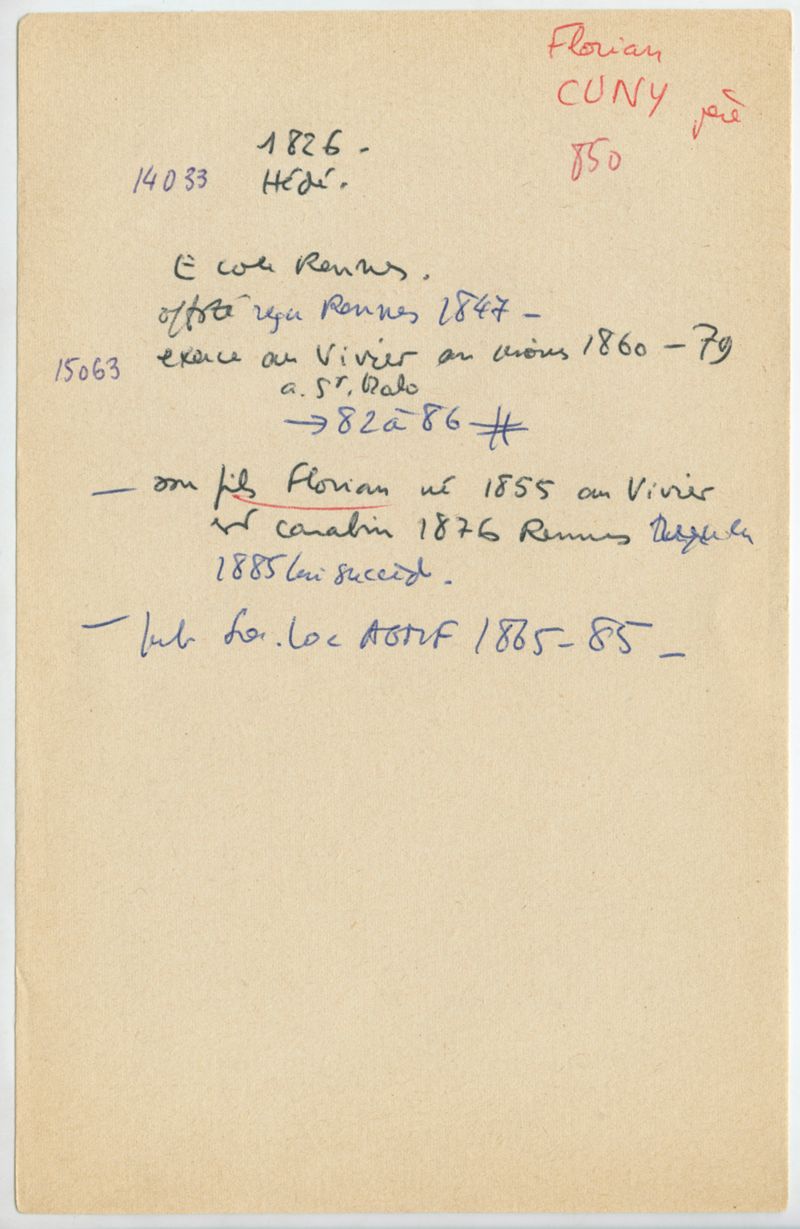 Florian
CUNY père
850
1826 -
14033 Hédé.
Ecole Rennes.
offsté reçu Rennes 1847 -
15063 exerce au Vivier au moins 1860 - 79
a. St. Malo
→ 82 à 86 #
— son fils Florian né 1855 au Vivier
est carabin 1876 Rennes
1885 lui succède.
— Soc. loc AGMF 1865-85 —